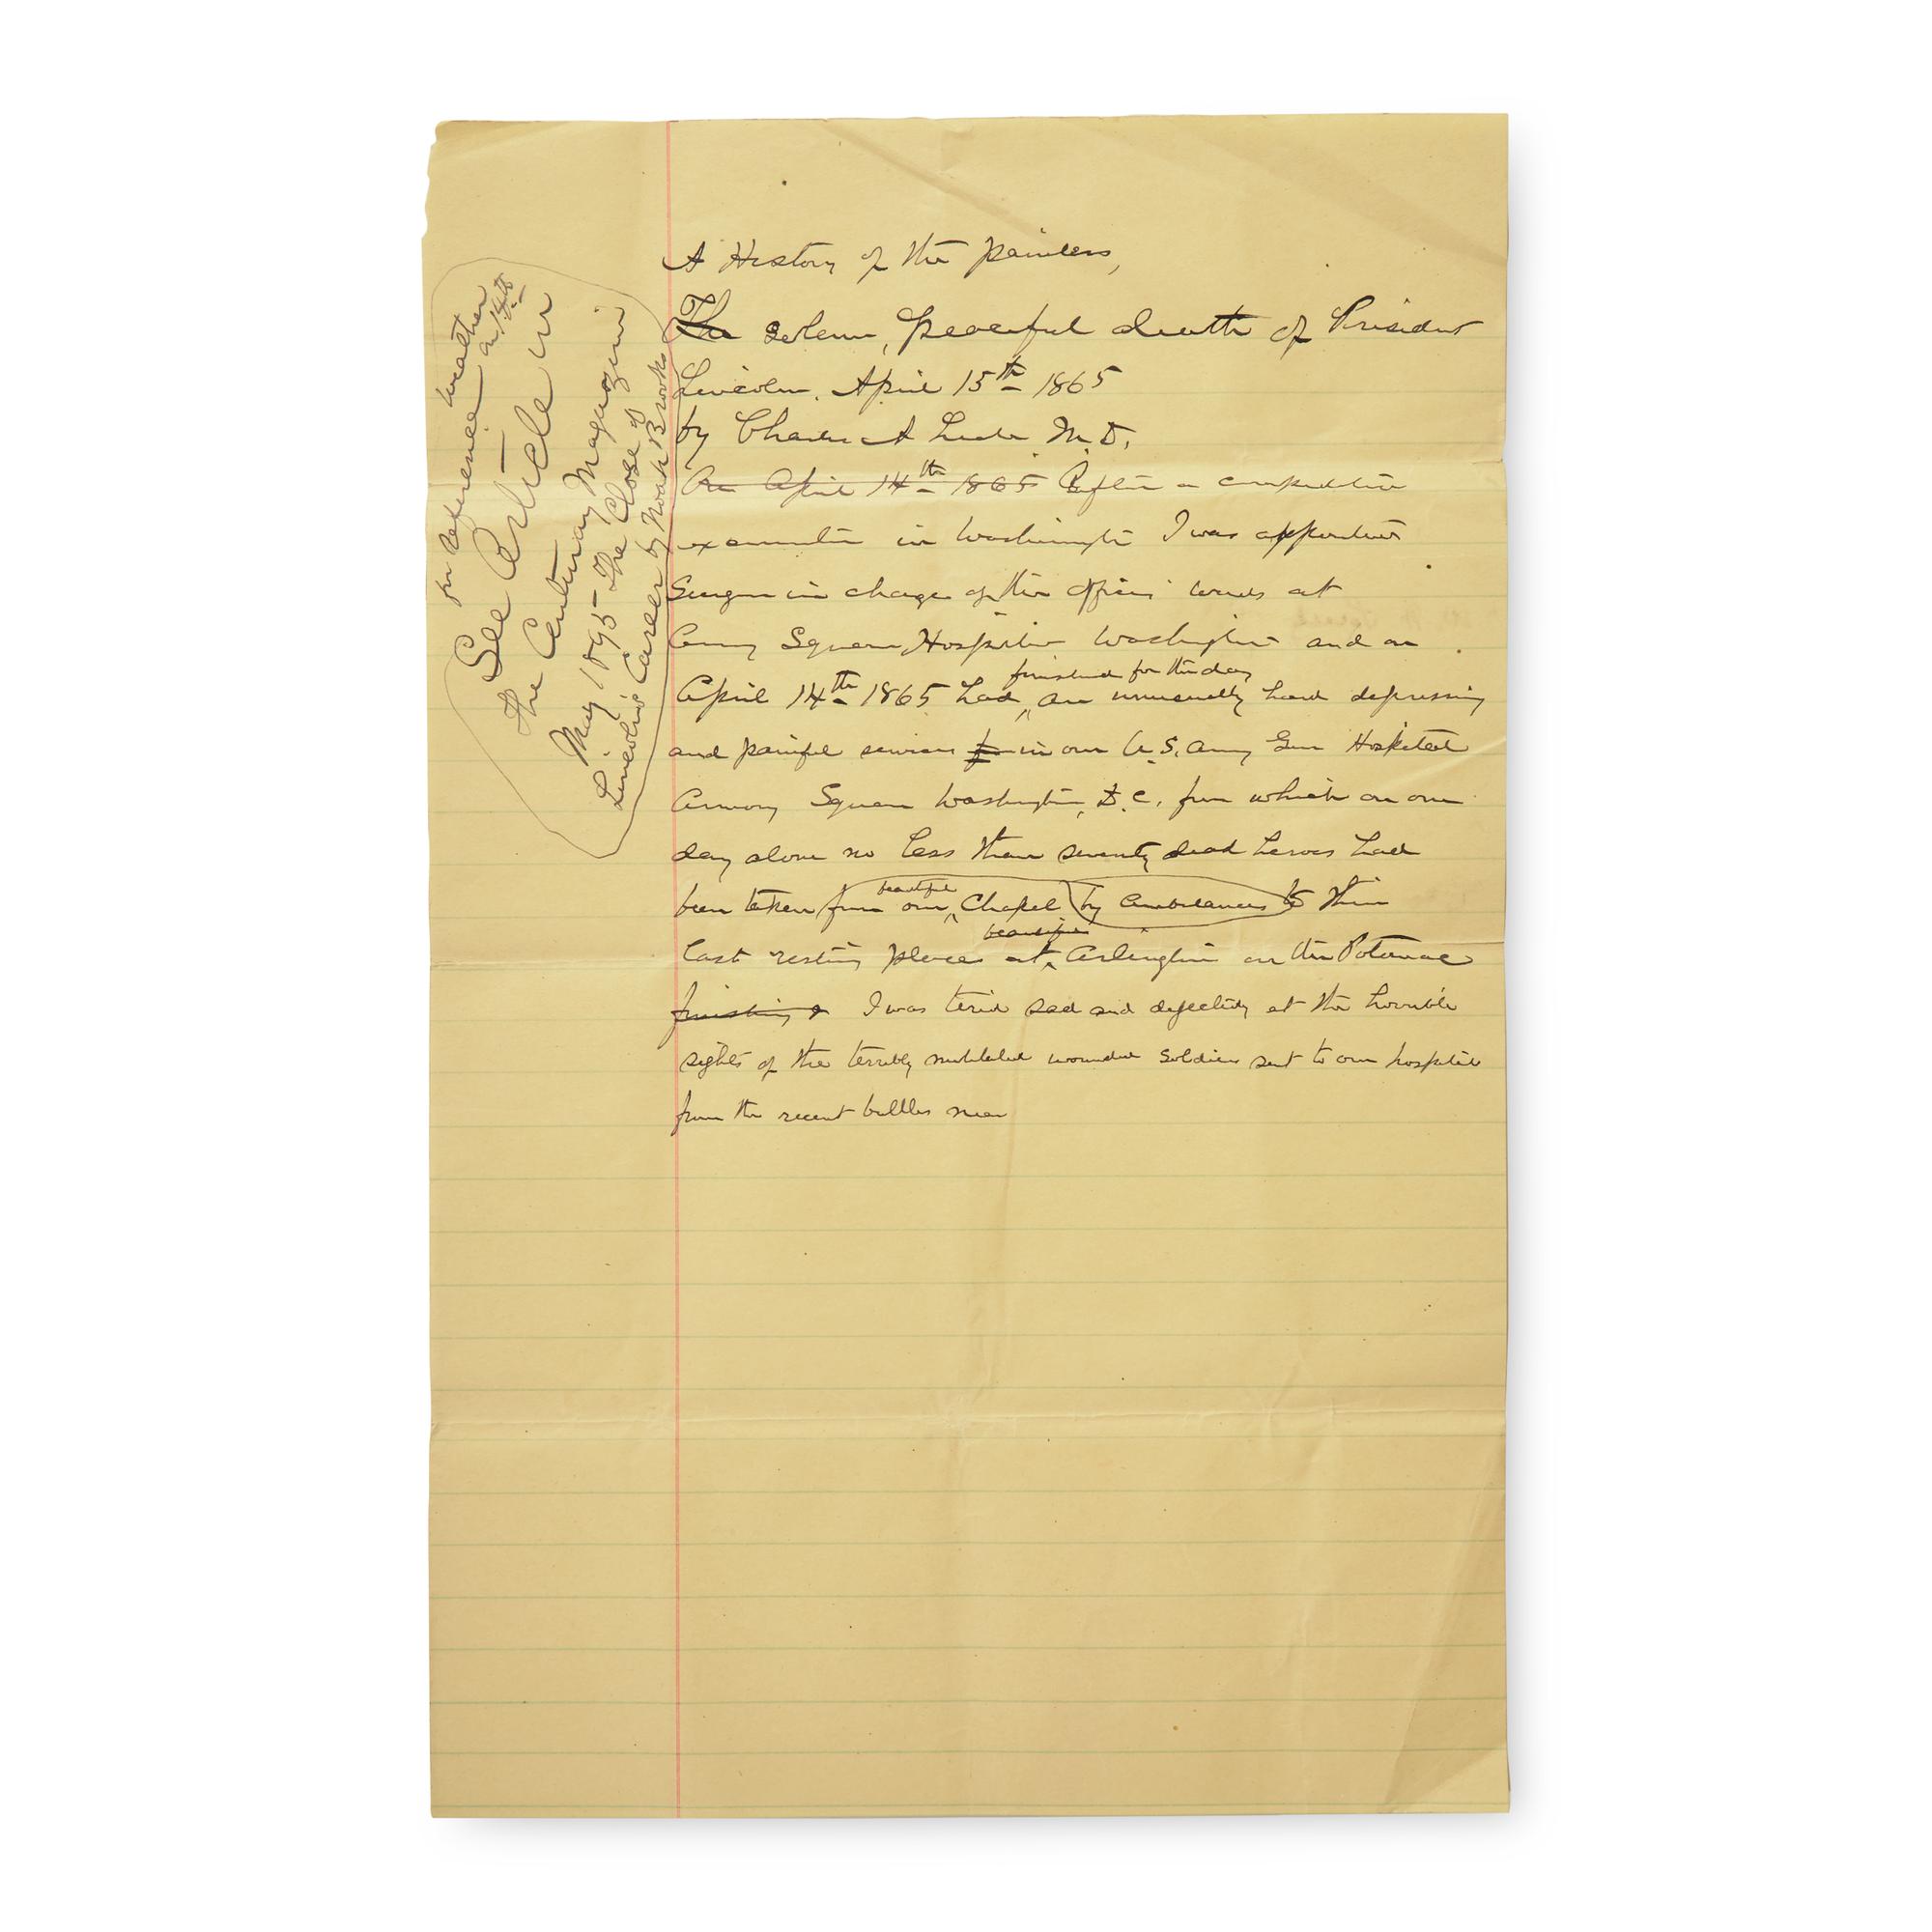 A History of the painless,
The solemn, peaceful death of President
Lincoln. April 15th 1865
by Charles A Leale M.D.
On April 14th 1865 After a competitive
examination in Washington I was appointed
Surgeon in charge of the Officers wards at
Army Square Hospital Washington and on
finished for the day
April 14th 1865 had an unusually hard depressing
and painful services in our U.S. Army Gen Hospital
Armory Square Washington, D.C. from which on one
day alone no less than seventy dead heroes had
beautiful
been taken from our Chapel by ambulances to their
beautiful
last resting place at Arlington on the Potomac
finishing I was tired sad and at the horrible
sights of the terribly mutilated wounded soldiers sent to our hospital
from the recent battles near
for reference weather on 14th
See Article in
the Century Magazine
May 1895 The Close of
Lincoln's Career by Noah Brooks